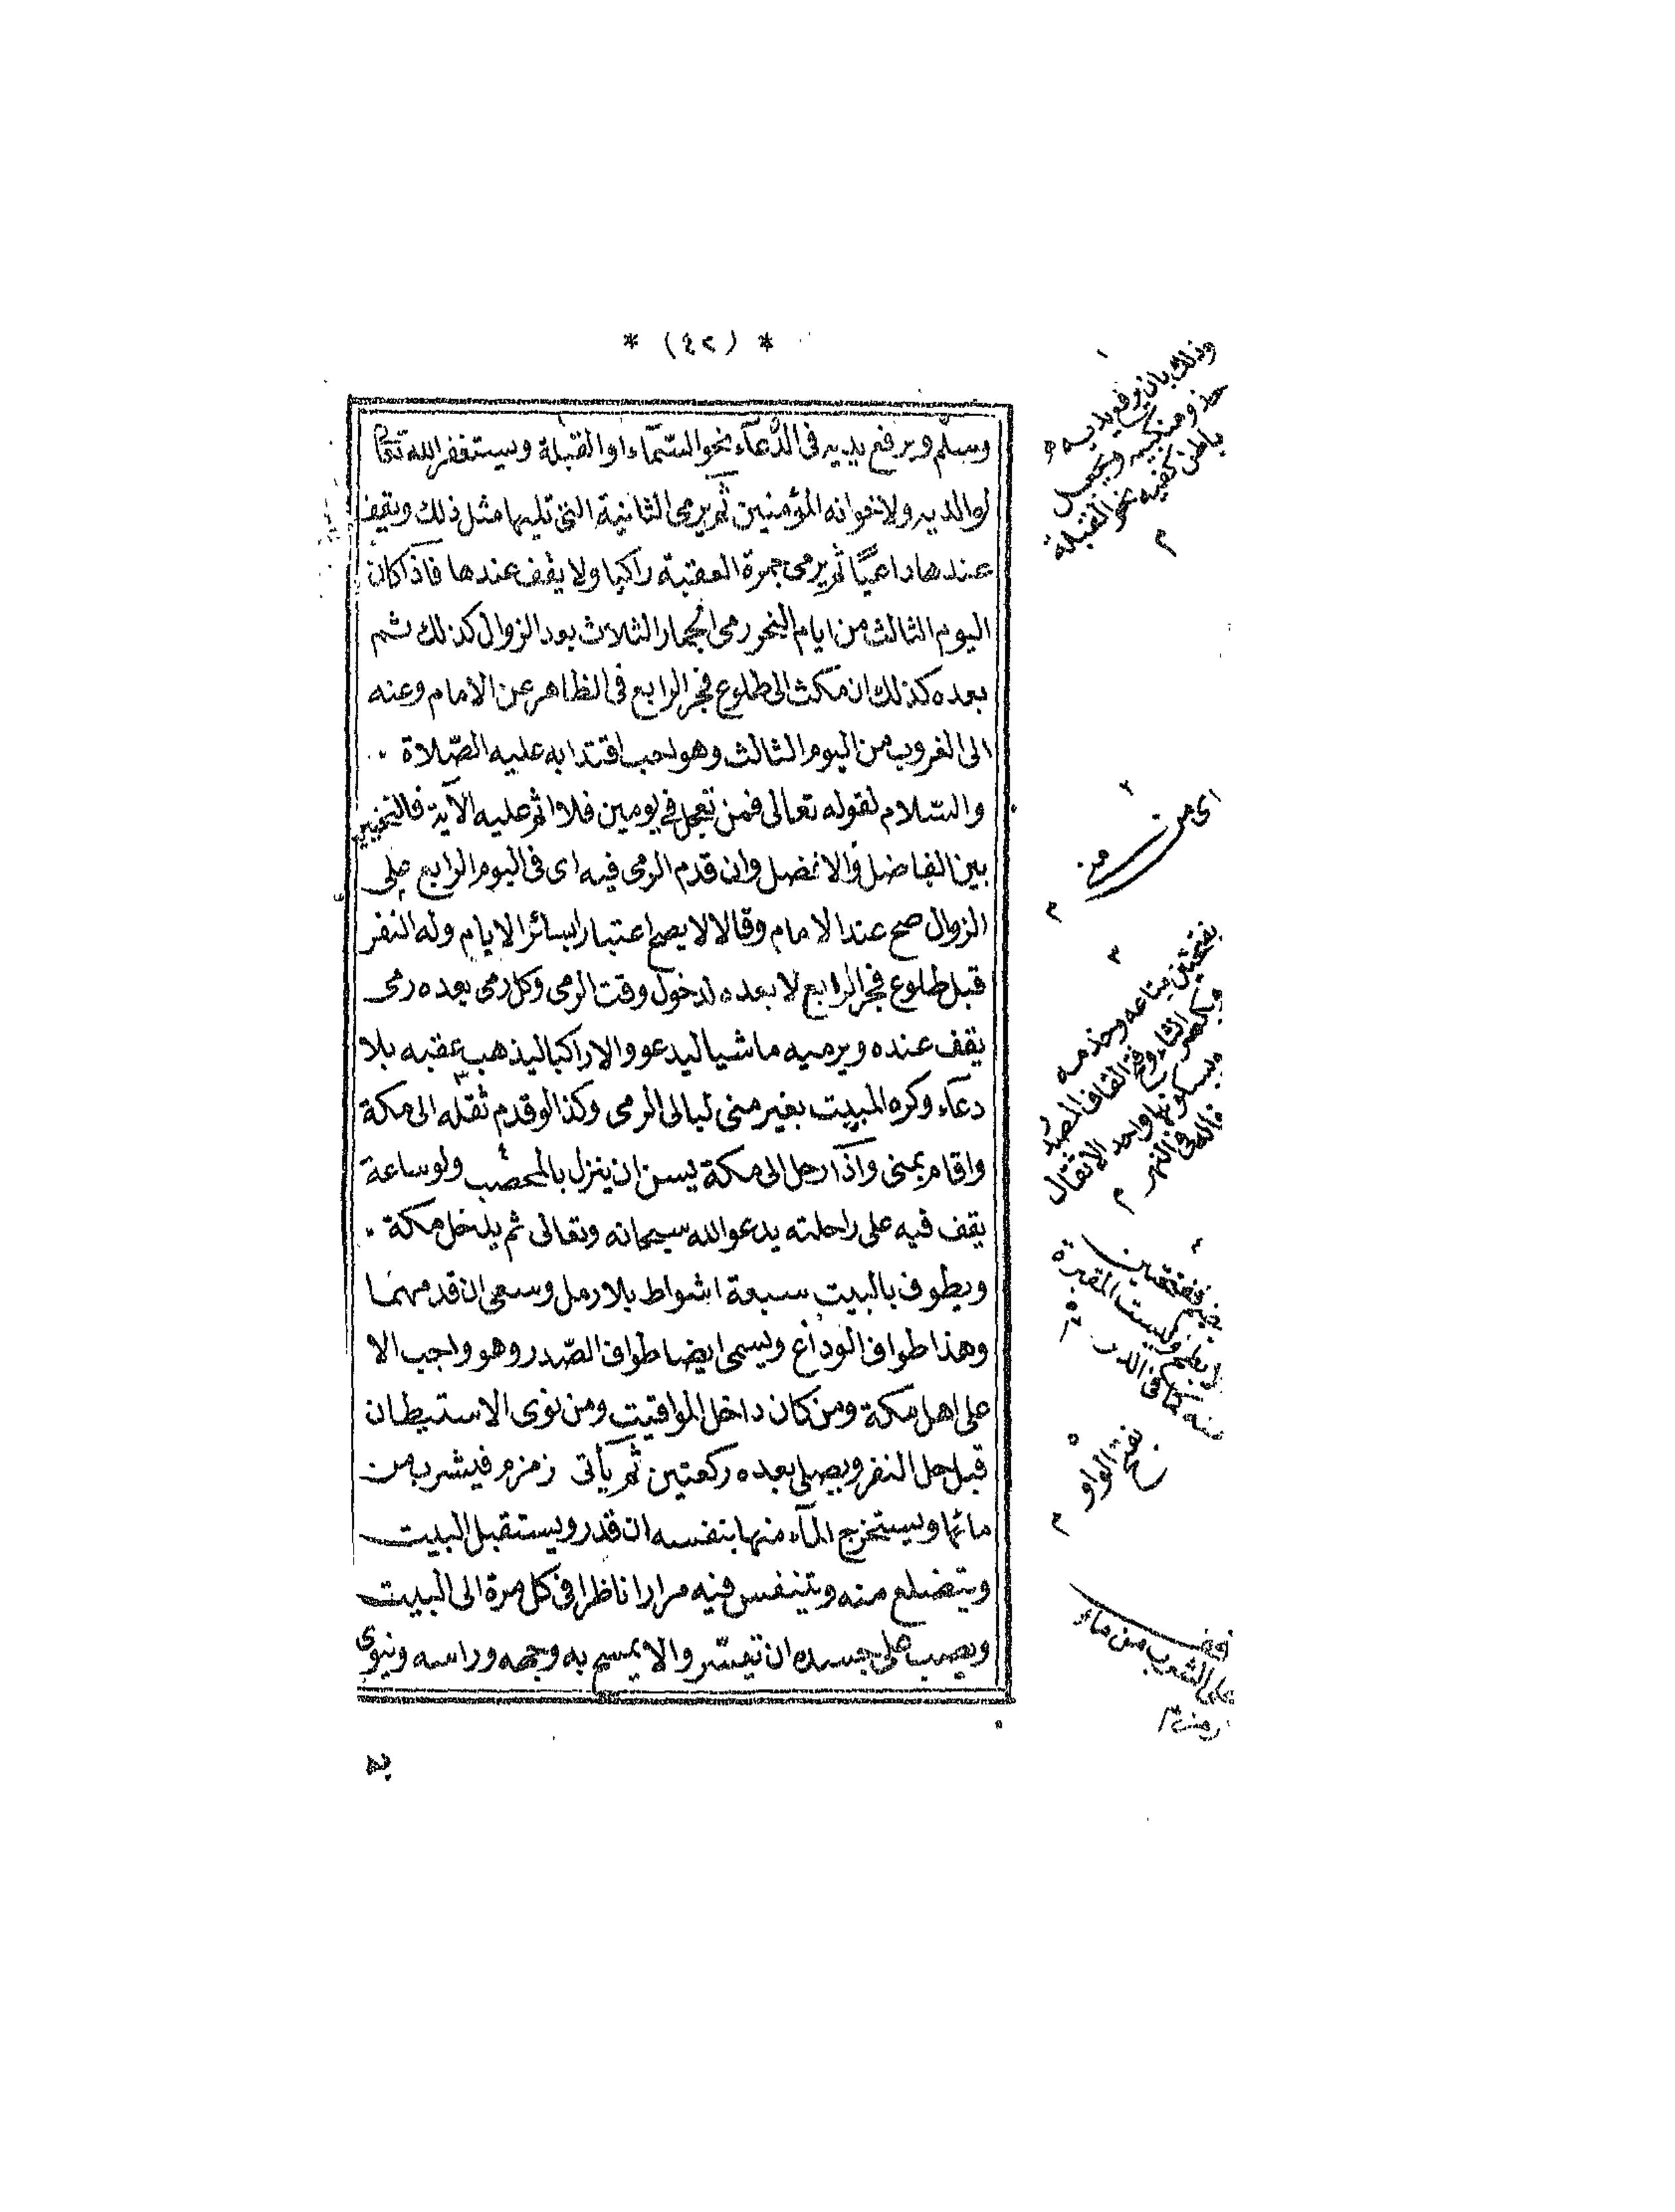 * (٤٢) *
وسلّم ويرفع يديه فى الدّعآء نحو السّمآء او القبلة ويستغفر الله تعالى
لوالديه ولاخوانه المؤمنين ثم يرمى الثانية التى تليها مثل ذلك ويقف
عندها داعيًا ثم يرمى جمرة العقبة راكبا ولا يقف عندها فاذا كان
اليوم الثالث من ايام النحر رمى الجمار الثلاث بعد الزوال كذلك ثم
بعده كذلك ان مكث الى طلوع فجر الرابع فى الظاهر عن الامام وعنه
الى الغروب من اليوم الثالث وهو احب اقتدا به عليه الصّلاة
والسّلام لقوله تعالى فمن تعجل فى يومين فلا اثم عليه الآية فالتخيير
بين الفاضل والافضل وان قدم الرمى فيه اى فى اليوم الرابع على
الزوال صح عند الامام وقالا لا يصح اعتبارا بسائر الايام وله النفر
قبل طلوع فجر الرابع لا بعده لدخول وقت الرمى وكل رمى بعده رمى
يقف عنده ويرميه ماشيا ليدعو والا راكبا ليذهب عقبه بلا
دعآء وكره المبيت بغير منى ليالى الرمى وكذا لو قدم ثقله الى مكة
واقام بمنى واذا رحل الى مكة يسن ان ينزل بالمحصّب ولو ساعة
يقف فيه على راحلته يدعو الله سبحانه وتعالى ثم يدخل مكة
ويطوف بالبيت سبعة اشواط بلا رمل وسعى ان قدمهما
وهذا طواف الوداع ويسمى ايضا طواف الصّدر وهو واجب الا
على اهل مكة ومن كان داخل المواقيت ومن نوى الاستيطان
قبل حل النفر ويصلى بعده ركعتين ثم يأتى زمزم فيشرب من
مائها ويستخرج المآء منها بنفسه ان قدر ويستقبل البيت
ويتضلع منه ويتنفس فيه مرارا ناظرا فى كل مرة الى البيت
ويصب على جسده ان تيسّر والا يمسح به وجهه وراسه وينوى
به
١
وذلك بان يرفع يديه
حذو منكبيه ويجعل
باطن كفيه نحو القبلة
م
٢
اى من
منى
م
٣
بفتحتين متاعه وخدمه
وبكسر الثاء وفتح القاف المصدر
وبسكونها واحد الاثقال
قاله فى النهر
م
٤
بضم ففتحتين
وليست المقبرة
منه كما فى الدر
م
٥
بفتح الواو
م
قف
على الشرب من ماء
زمزم